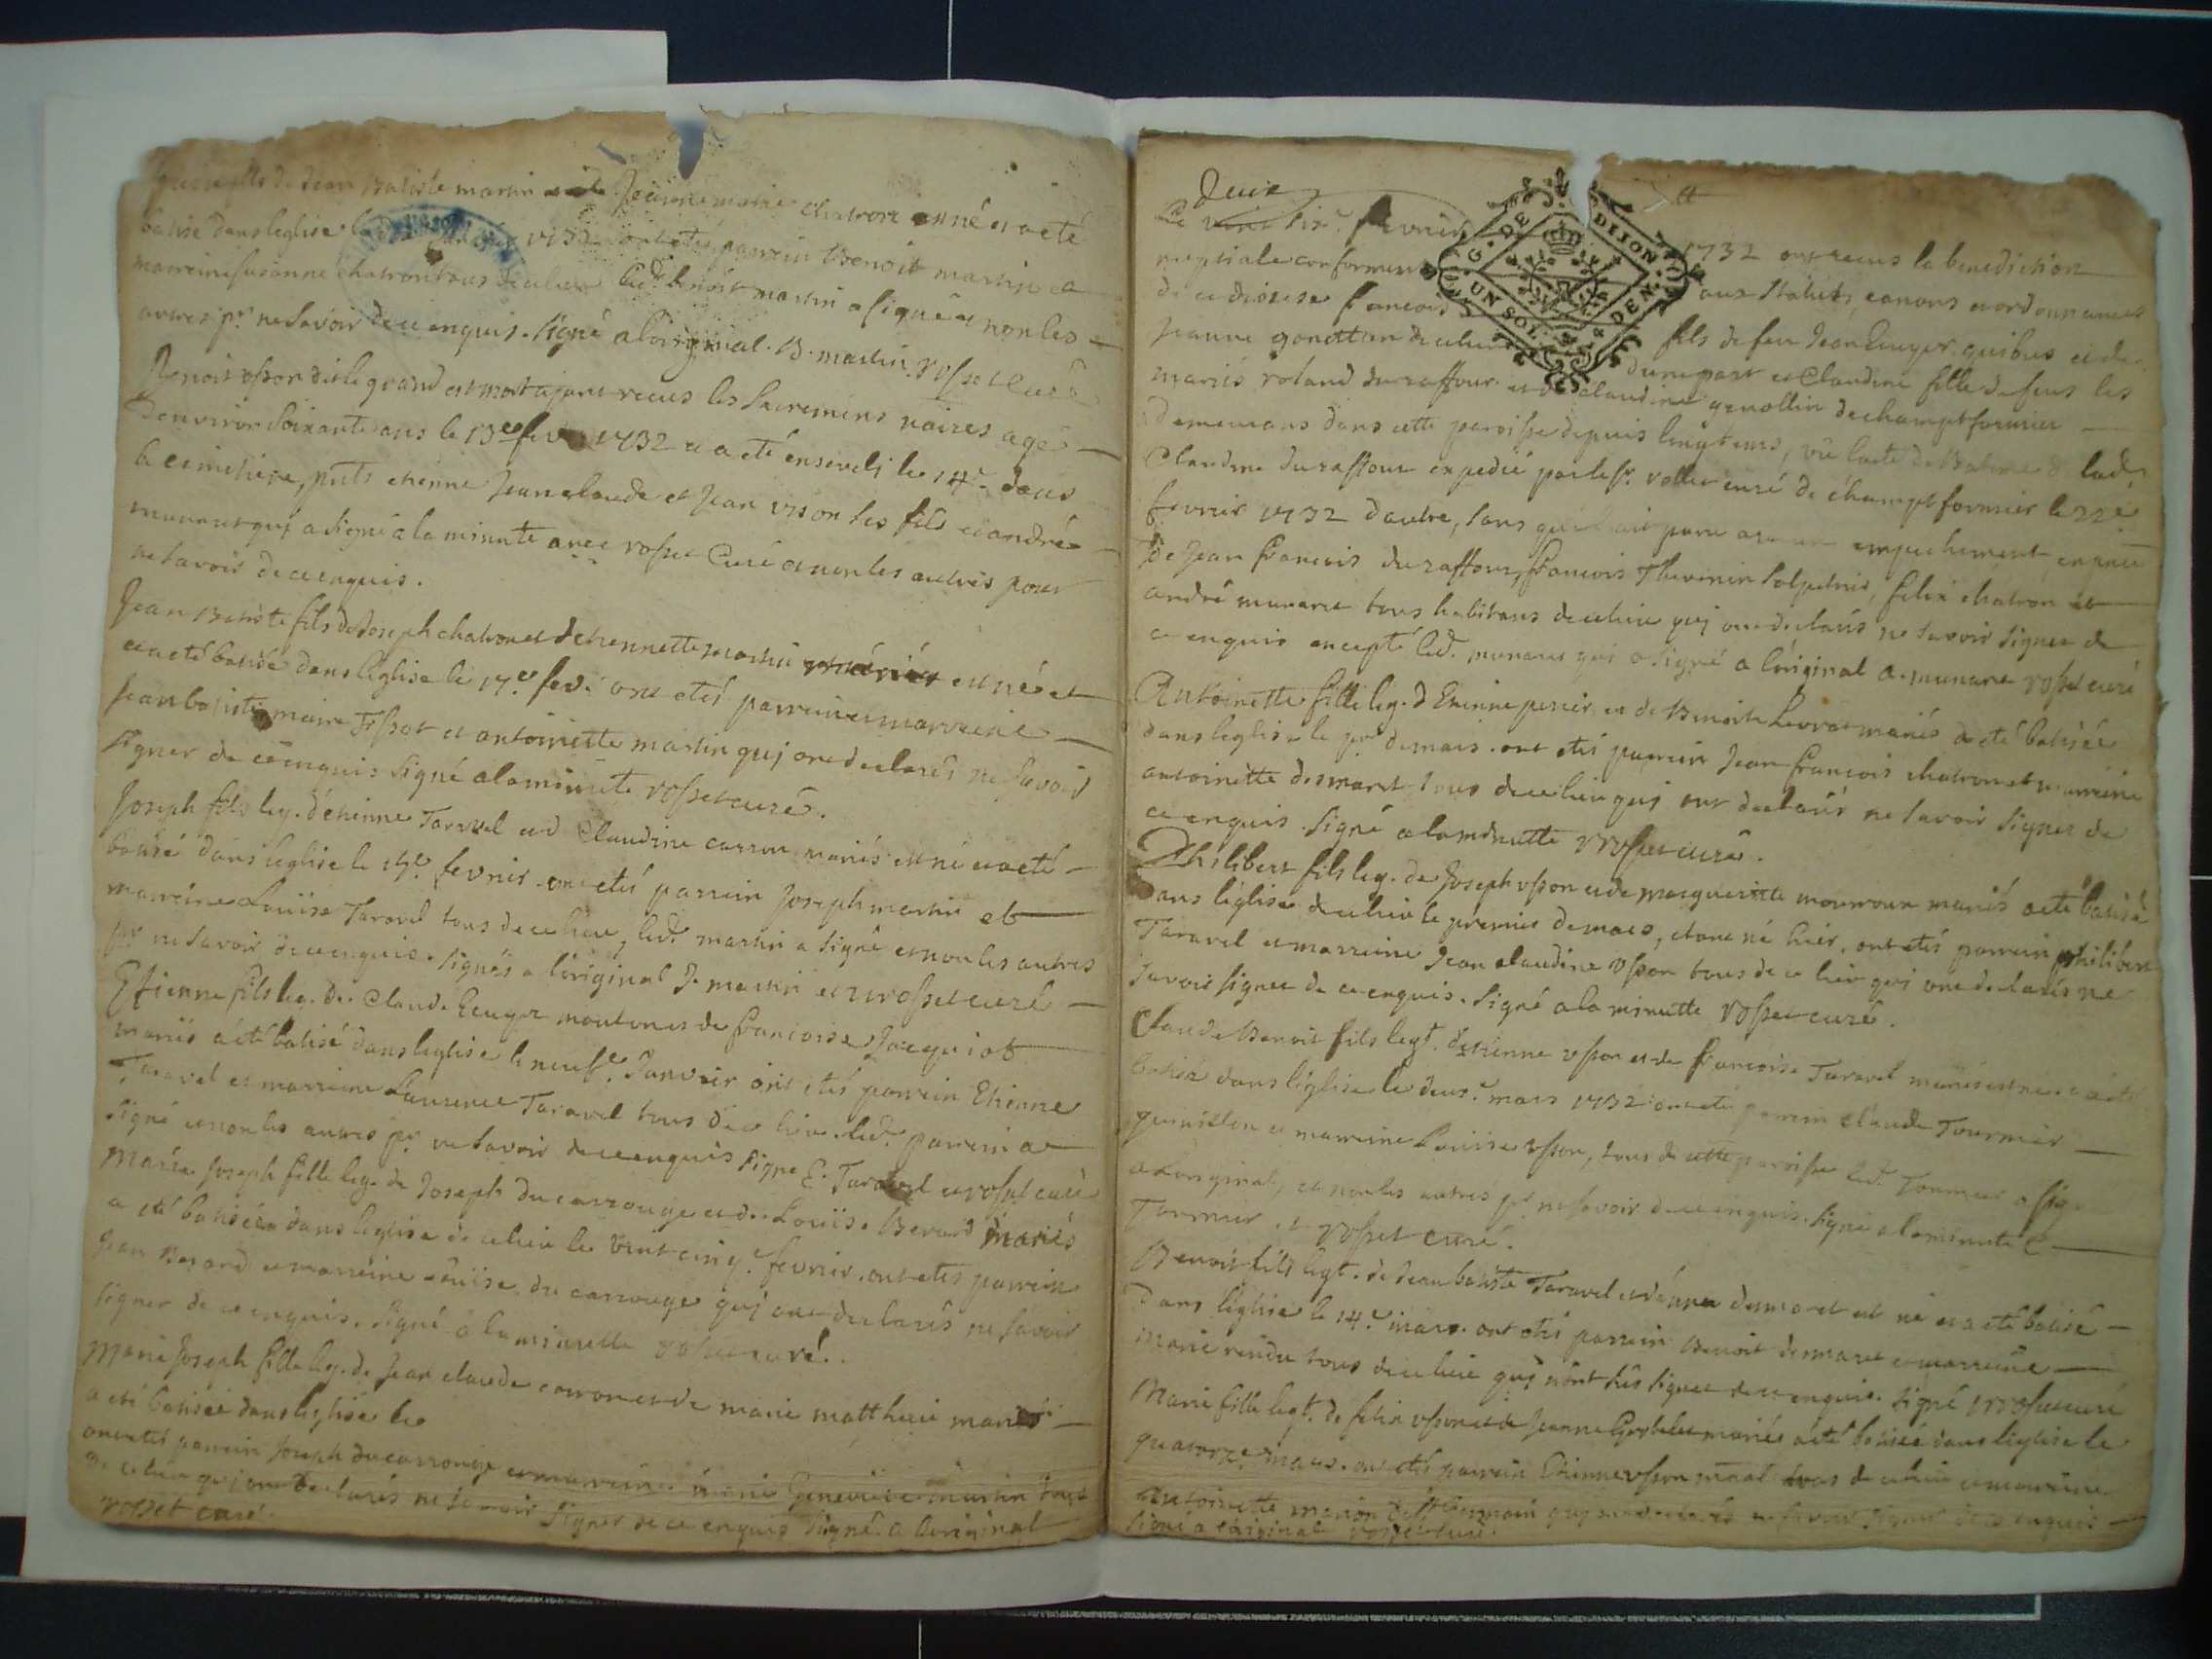 fils de Jean Batiste martin et de Jeanne marie chatron est né et a eté
batisé dans leglise le 1732 ont etés parrein Benoit martin et
marreine susanne chatron tous de ce lieu led. benoit martin a signé et non les
autres pr. ne savoir de ce enquis. signé a loriginal. B. martin. rosset curé
Benoit vsson dit le grand est mort ajant receus les sacremens noires agé
denviron soixante ans le 13e fev. 1732 et a eté enseveli le 14e. dans
le cimetiere, pnts etienne Jean claude et Jean vsson ses fils et andré
munaret qui a signé a la minutte avec rosset Curé et non les autres pour
ne savoir de ce enquis.
Jean Batiste fils de Joseph chatron et detiennette martin est né et
et a eté batisé dans léglise le 17e fev. ont etés parrein et marreine
Jean batiste maire et antoinette martin quj ont declarés ne savoir
signer de ce enquis signé a la minutte rosset curé.
Joseph fils leg. détienne Taravel et d Claudine carron mariés est né et a eté
batisé dans leglise le 19e. fevrier ont etés parrein Joseph martin et
marreine Louise Taravel tous de ce lieu, led. martin a signé et non les autres
pr. ne savoir de ce enquis. signés a loriginal J. martin et rosset curé
Etienne fils leg. de Claude Ecuyer et de francoise Jacquiot
mariés a eté batisé dans leglise le neufe. Janvier ont etés parrein Etienne
Taravel et marreine Laurence Taravel tous de ce lieu. led. parrein a
signé et non les autres pr. ne savoir de ce enquis signe E. Taravel et rosset curé
Marie Joseph fille leg. de Joseph du carrouge et de Louise Berard mariés
a eté batisée dans leglise de ce lieu le vint cinqe. fevrier. ont etés parrein
Jean Berard et marreine Louise du carrouge quj ont declarés ne savoir
signer de ce enquis. signé a la minutte rosset curé.
Marie Joseph fille leg. de Jean claude carron et de marie matthieu mariés
a eté batisée dans leglise le
ont etés parrein Joseph du carrouge et marreine marie Genevieve martin tous
de ce lieu qui ont declarés ne savoir signer de ce enquis signé a loriginal
rosset curé.
Deux
Le vint sixe. fevrier 1732 ont receus la benediction
nuptiale conformement aux statuts, canons et ordonnances
de ce diocese francois fils de feu Jean Ecuyer quibus et de
Jeanne gonettan de ce lieu dune part et Claudine fille de feus les
mariés roland du raffour et de claudine genollin de champtfromier
demeurans dans cette paroisse depuis longtems, vû lacte de Bateme de lad.
Claudine du raffour expedié par le sr. vollet curé de champtfromier le 22e
fevrier 1732 dautre, sans quil ait paru aucun empechement en pnce
de Jean francois du raffour, francois Thevenin salpetrier, felix chatron et
andré munaret tous habitans de ce lieu quj ont declarés ne savoir signer de
ce enquis excepté led. munaret qui a signé a loriginal A. munaret rosset curé
Antoinette fille leg. d Etienne perrier et de Benoite Levrat mariés a eté batisée
dans leglise le pr. de mars. ont etés parrein Jean francois chatron et marreine
antoinette desmaret tous de ce lieu quj ont declarés ne savoir signer de
ce enquis. signé a la minutte rosset curé.
Philibert fils leg. de Joseph vsson et de marguerite mouroux mariés a eté batisé
dans léglise de ce lieu le premier de mars, etant né hier. ont etés parrein philibert
Taravel et marreine Jean claudine vsson tous de ce lieu qui ont declarés ne
savoir signer de ce enquis. signé a la minutte rosset curé.
Claude Benoit fils legt. d'etienne vsson et de francoise Taravel mariés est né et a eté
batisé dans léglise le deuxe. mars 1732 ont eté parrein claude Tournier
et marreine Louise vsson, tous de cette paroisse led. Tournier a signé
a loriginal, et non les autres pr. ne savoir de ce enquis. signé a la minute C
Tournier et rosset curé.
Benoit fils legt. de Jean batiste Taravel et d'anna desmaret est né et a eté batisé
dans léglise le 14e. mars. ont etés parrein Benoit desmaret et marreine
Marie rendu tous de ce lieu quj n'ont sûs signer de ce enquis. signé rosset curé
Marie fille legt. de felix vsson et de Jeanne mariés a eté batisée dans léglise le
quatorze. mars. ont etés parrein Etienne vsson tous de ce lieu et marreine
Antoinette de st germain quj ont declarés ne savoir signer de ce enquis
signé a loriginal rosset curé.
G. DE DIJON
UN SOL 4 DEN.